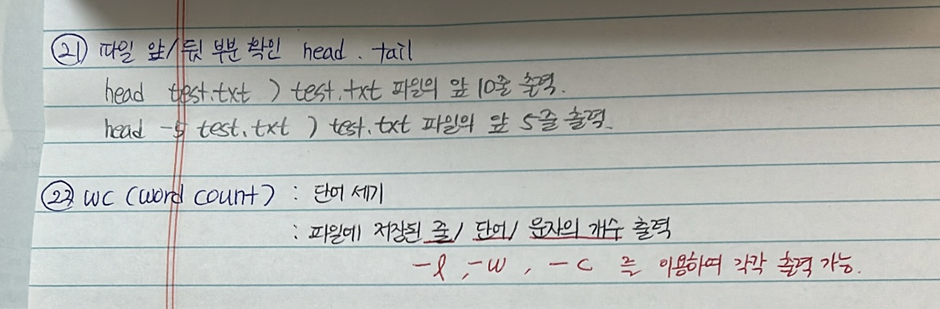 21 파일 앞/뒷 부분 확인 head . tail
head test.txt ) test.txt 파일의 앞 10줄 출력.
head -5 test.txt ) test.txt 파일의 앞 5줄 출력.
22 wc (word count) : 단어 세기
: 파일에 저장된 줄/ 단어/ 문자의 개수 출력
-l, -w, -c 를 이용하여 각각 출력 가능.